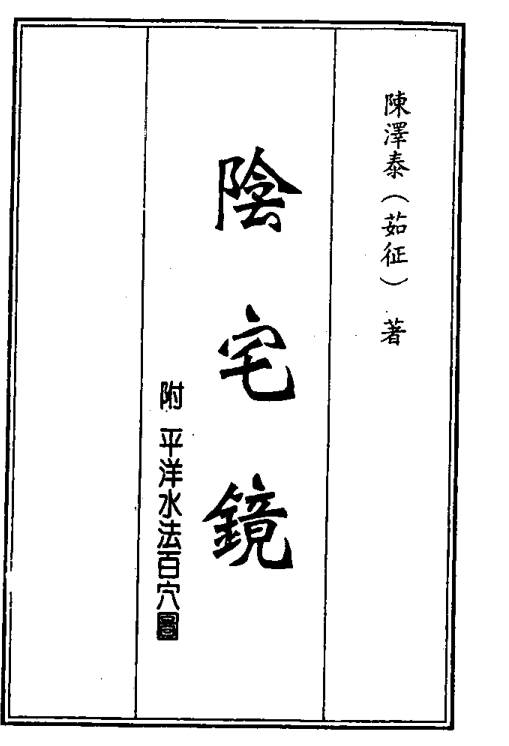 陳澤泰（茹征）著
陰宅鏡
附 平洋水法百穴圖